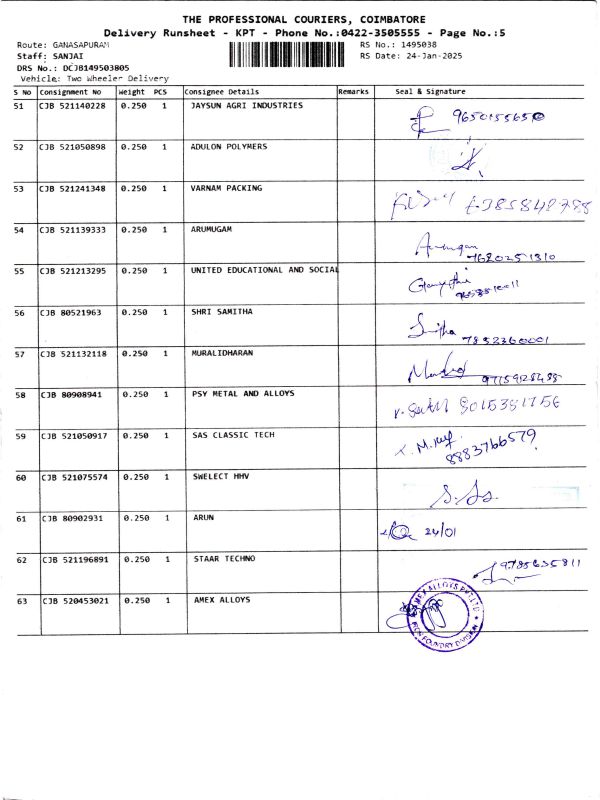 THE PROFESSIONAL COURIERS, COIMBATORE
Delivery Runsheet - KPT - Phone No.:0422-3505555 - Page No.:5
Route: GANASAPURAM RS No.: 1495038
Staff: SANJAI RS Date: 24-Jan-2025
DRS No.: DCJB149503805
Vehicle: Two Wheeler Delivery
S No Consignment No Weight PCS Consignee Details Remarks Seal & Signature
51 CJB 521140228 0.250 1 JAYSUN AGRI INDUSTRIES
52 CJB 521050898 0.250 1 ADULON POLYMERS
53 CJB 521241348 0.250 1 VARNAM PACKING
54 CJB 521139333 0.250 1 ARUMUGAM Arumugam
7620251310
55 CJB 521213295 0.250 1 UNITED EDUCATIONAL AND SOCIAL
56 CJB 80521963 0.250 1 SHRI SAMITHA
7852360001
57 CJB 521132118 0.250 1 MURALIDHARAN
9715928488
58 CJB 80908941 0.250 1 PSY METAL AND ALLOYS
59 CJB 521050917 0.250 1 SAS CLASSIC TECH
8883766579
60 CJB 521075574 0.250 1 SWELECT HHV
61 CJB 80902931 0.250 1 ARUN 24/01
62 CJB 521196891 0.250 1 STAAR TECHNO
63 CJB 520453021 0.250 1 AMEX ALLOYS
AMEX ALLOYS PVT LTD
IRON FOUNDRY DIVISION